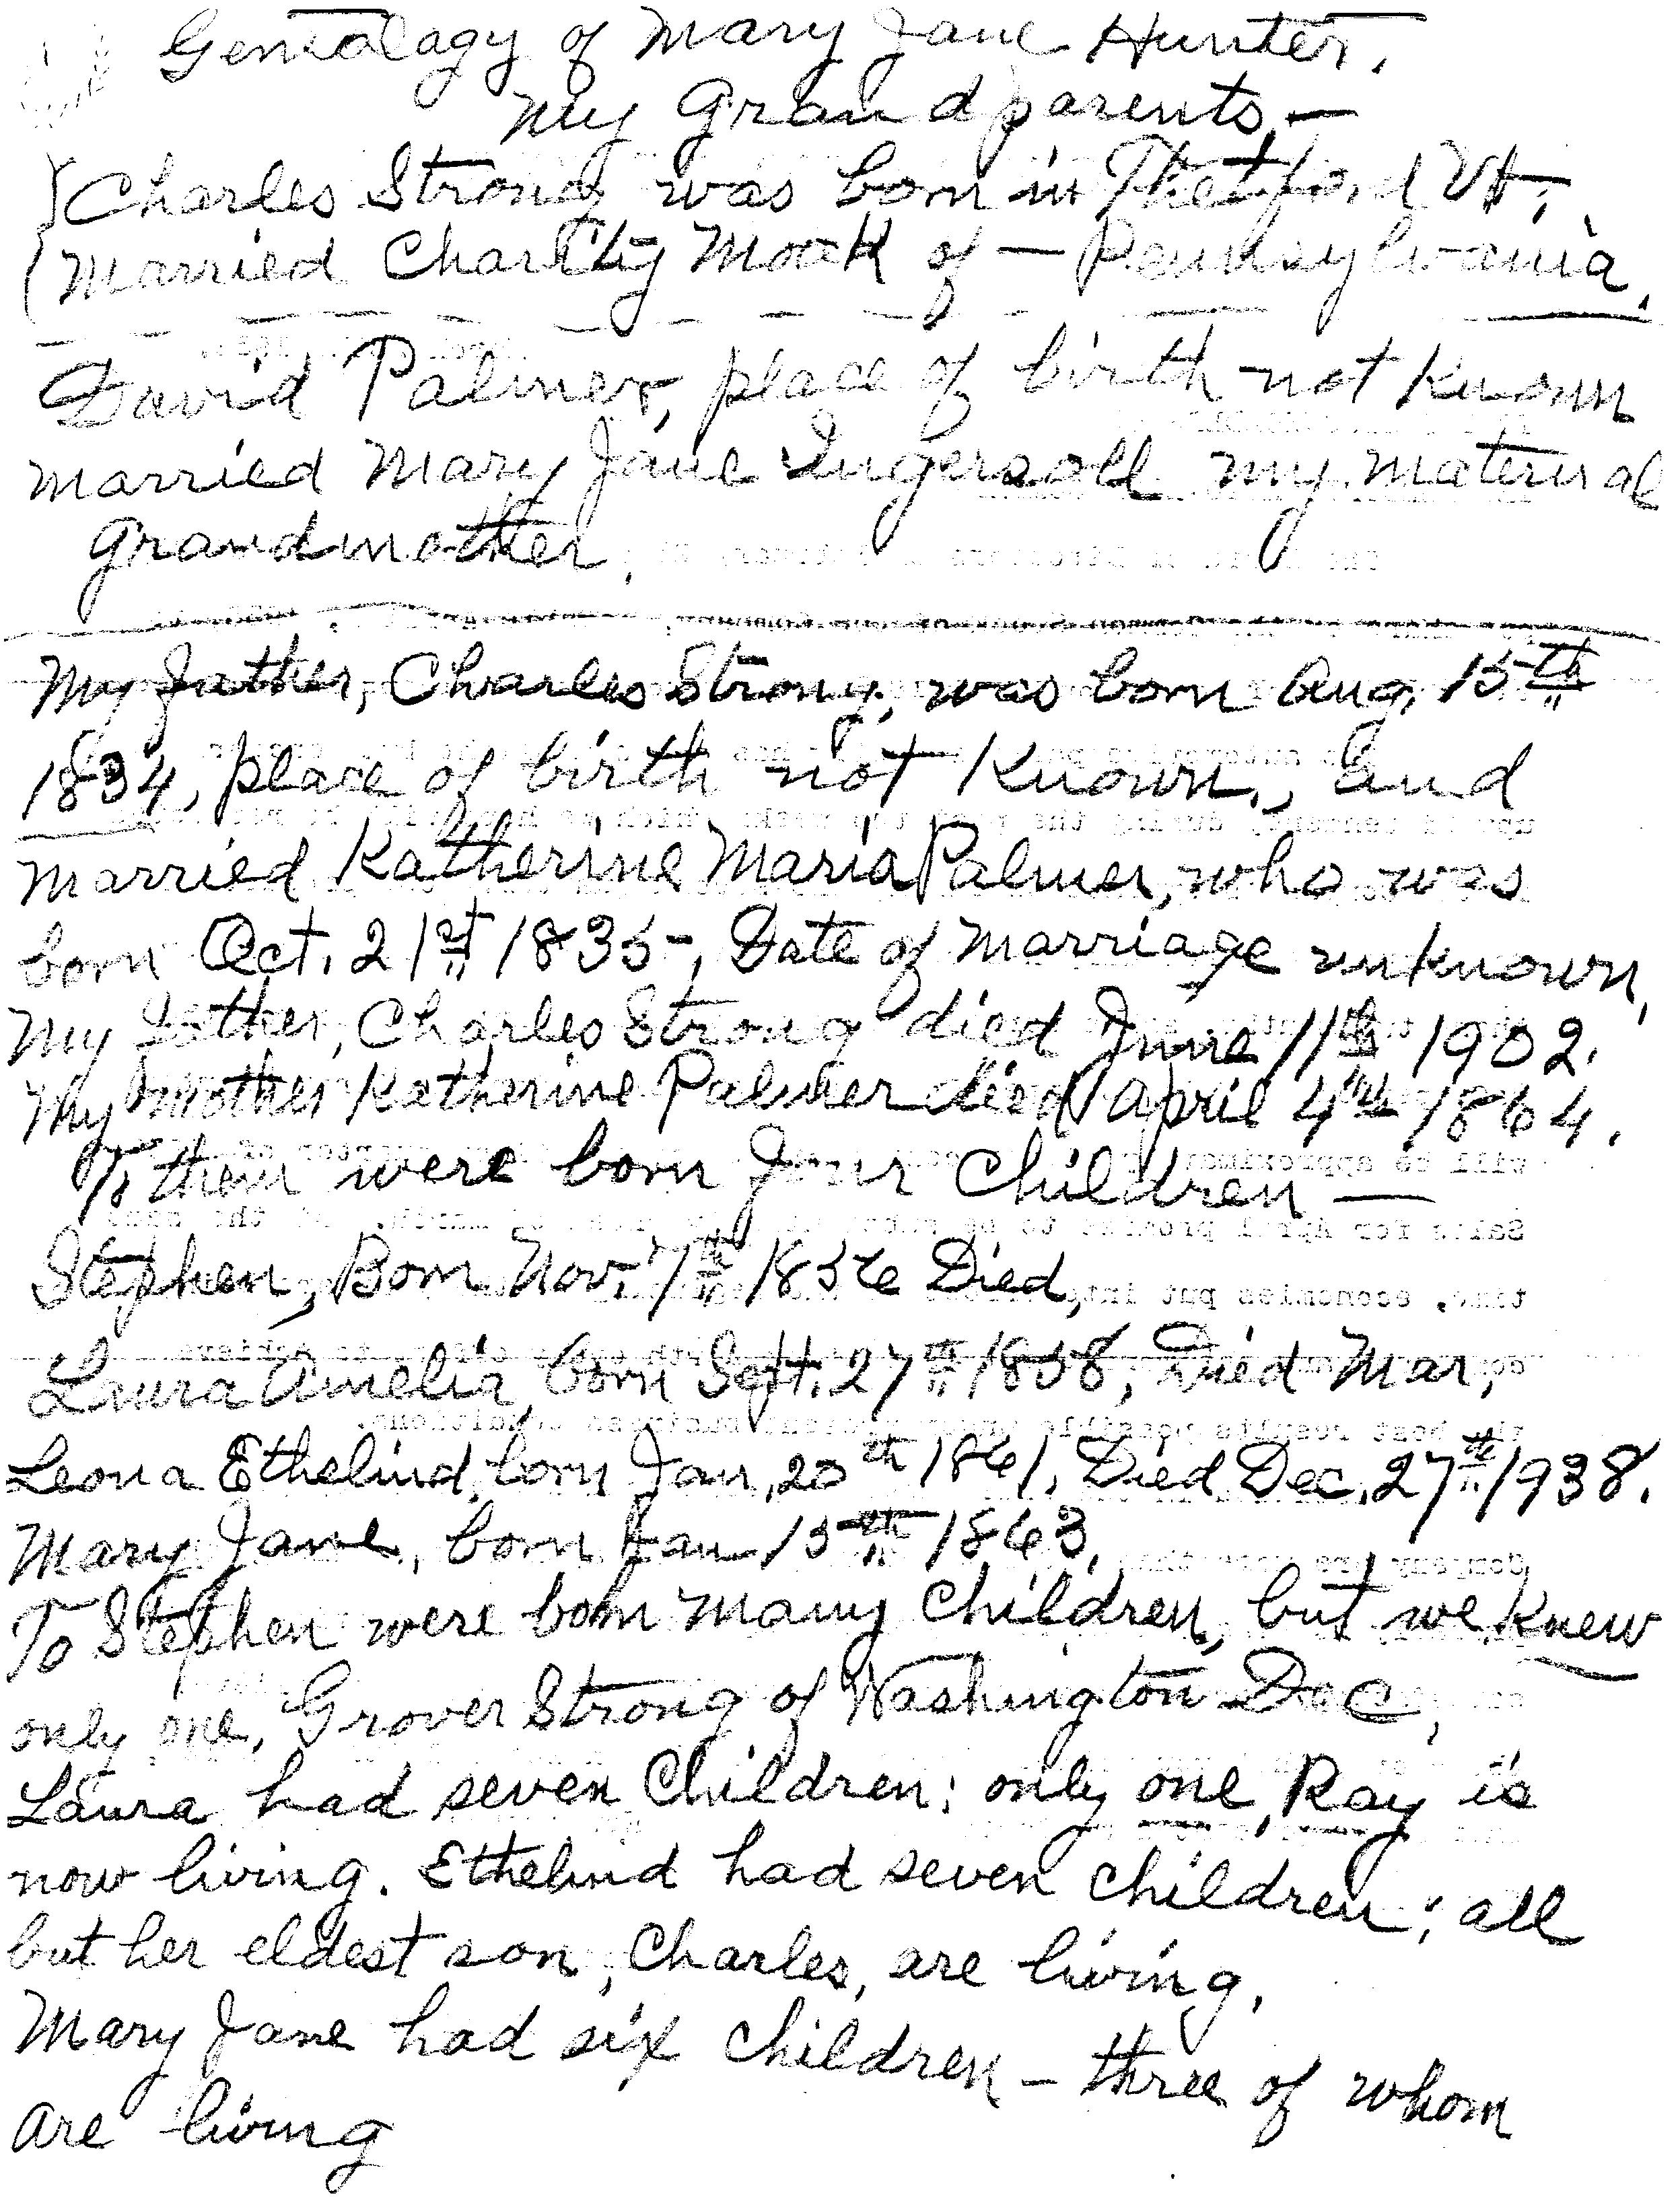 Genealagy of Mary Jane Hunter.
My Grandparents, —
Charles Strong was born in Thetford Vt.,
Married Charity Mock of — Pennsylvania.
David Palmer, place of birth not known
married Mary Jane Ingersoll my maternal
grandmother.
My father, Charles Strong, was born Aug. 15th
1834, place of birth not known, and
married Katherine Maria Palmer, who was
born Oct. 21st 1835-, Date of marriage unknown,
My father, Charles Strong died June 11th 1902.
My mother Katherine Palmer died April 4th 1864.
To them were born four children —
Stephen, Born Nov. 7th 1856 Died,
Laura Amelia, born Sept. 27th 1858, Died Mar,
Leona Ethelind, born Jan, 20th 1861. Died Dec. 27th 1938.
Mary Jane, born Jan 15th 1863.
To Stephen were born many children, but we knew
only one, Grover Strong of Washington D C,
Laura had seven children; only one, Ray is
now living. Ethelind had seven children; all
but her eldest son, Charles, are living.
Mary Jane had six children – three of whom
are living